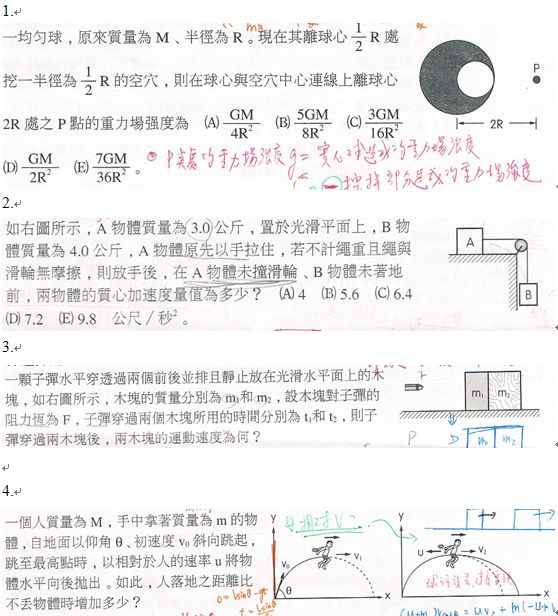 1.
一均勻球，原來質量為 M、半徑為 R。現在其離球心 1/2 R 處
挖一半徑為 1/2 R 的空穴，則在球心與空穴中心連線上離球心
2R 處之 P 點的重力場強度為 (A) GM/4R² (B) 5GM/8R² (C) 3GM/16R²
(D) GM/2R² (E) 7GM/36R² 。
P
2R
P 點處的重力場強度 g = 實心球造成的重力場強度
－ 挖掉部分造成的重力場強度
2.
如右圖所示，A 物體質量為 3.0 公斤，置於光滑平面上，B 物
體質量為 4.0 公斤，A 物體原先以手拉住，若不計繩重且繩與
滑輪無摩擦，則放手後，在 A 物體未撞滑輪、B 物體未著地
前，兩物體的質心加速度量值為多少？ (A) 4 (B) 5.6 (C) 6.4
(D) 7.2 (E) 9.8 公尺／秒²。
A
B
3.
一顆子彈水平穿透過兩個前後並排且靜止放在光滑水平面上的木
塊，如右圖所示，木塊的質量分別為 m₁和 m₂，設木塊對子彈的
阻力恆為 F，子彈穿過兩個木塊所用的時間分別為 t₁和 t₂，則子
彈穿過兩木塊後，兩木塊的運動速度為何？
m₁ m₂
m₁ m₂
4.
一個人質量為 M，手中拿著質量為 m 的物
體，自地面以仰角 θ、初速度 v₀ 斜向跳起，
跳至最高點時，以相對於人的速率 u 將物
體水平向後拋出。如此，人落地之距離比
不丟物體時增加多少？
y
v₀
θ
v₁
x
y
u
v₂
x